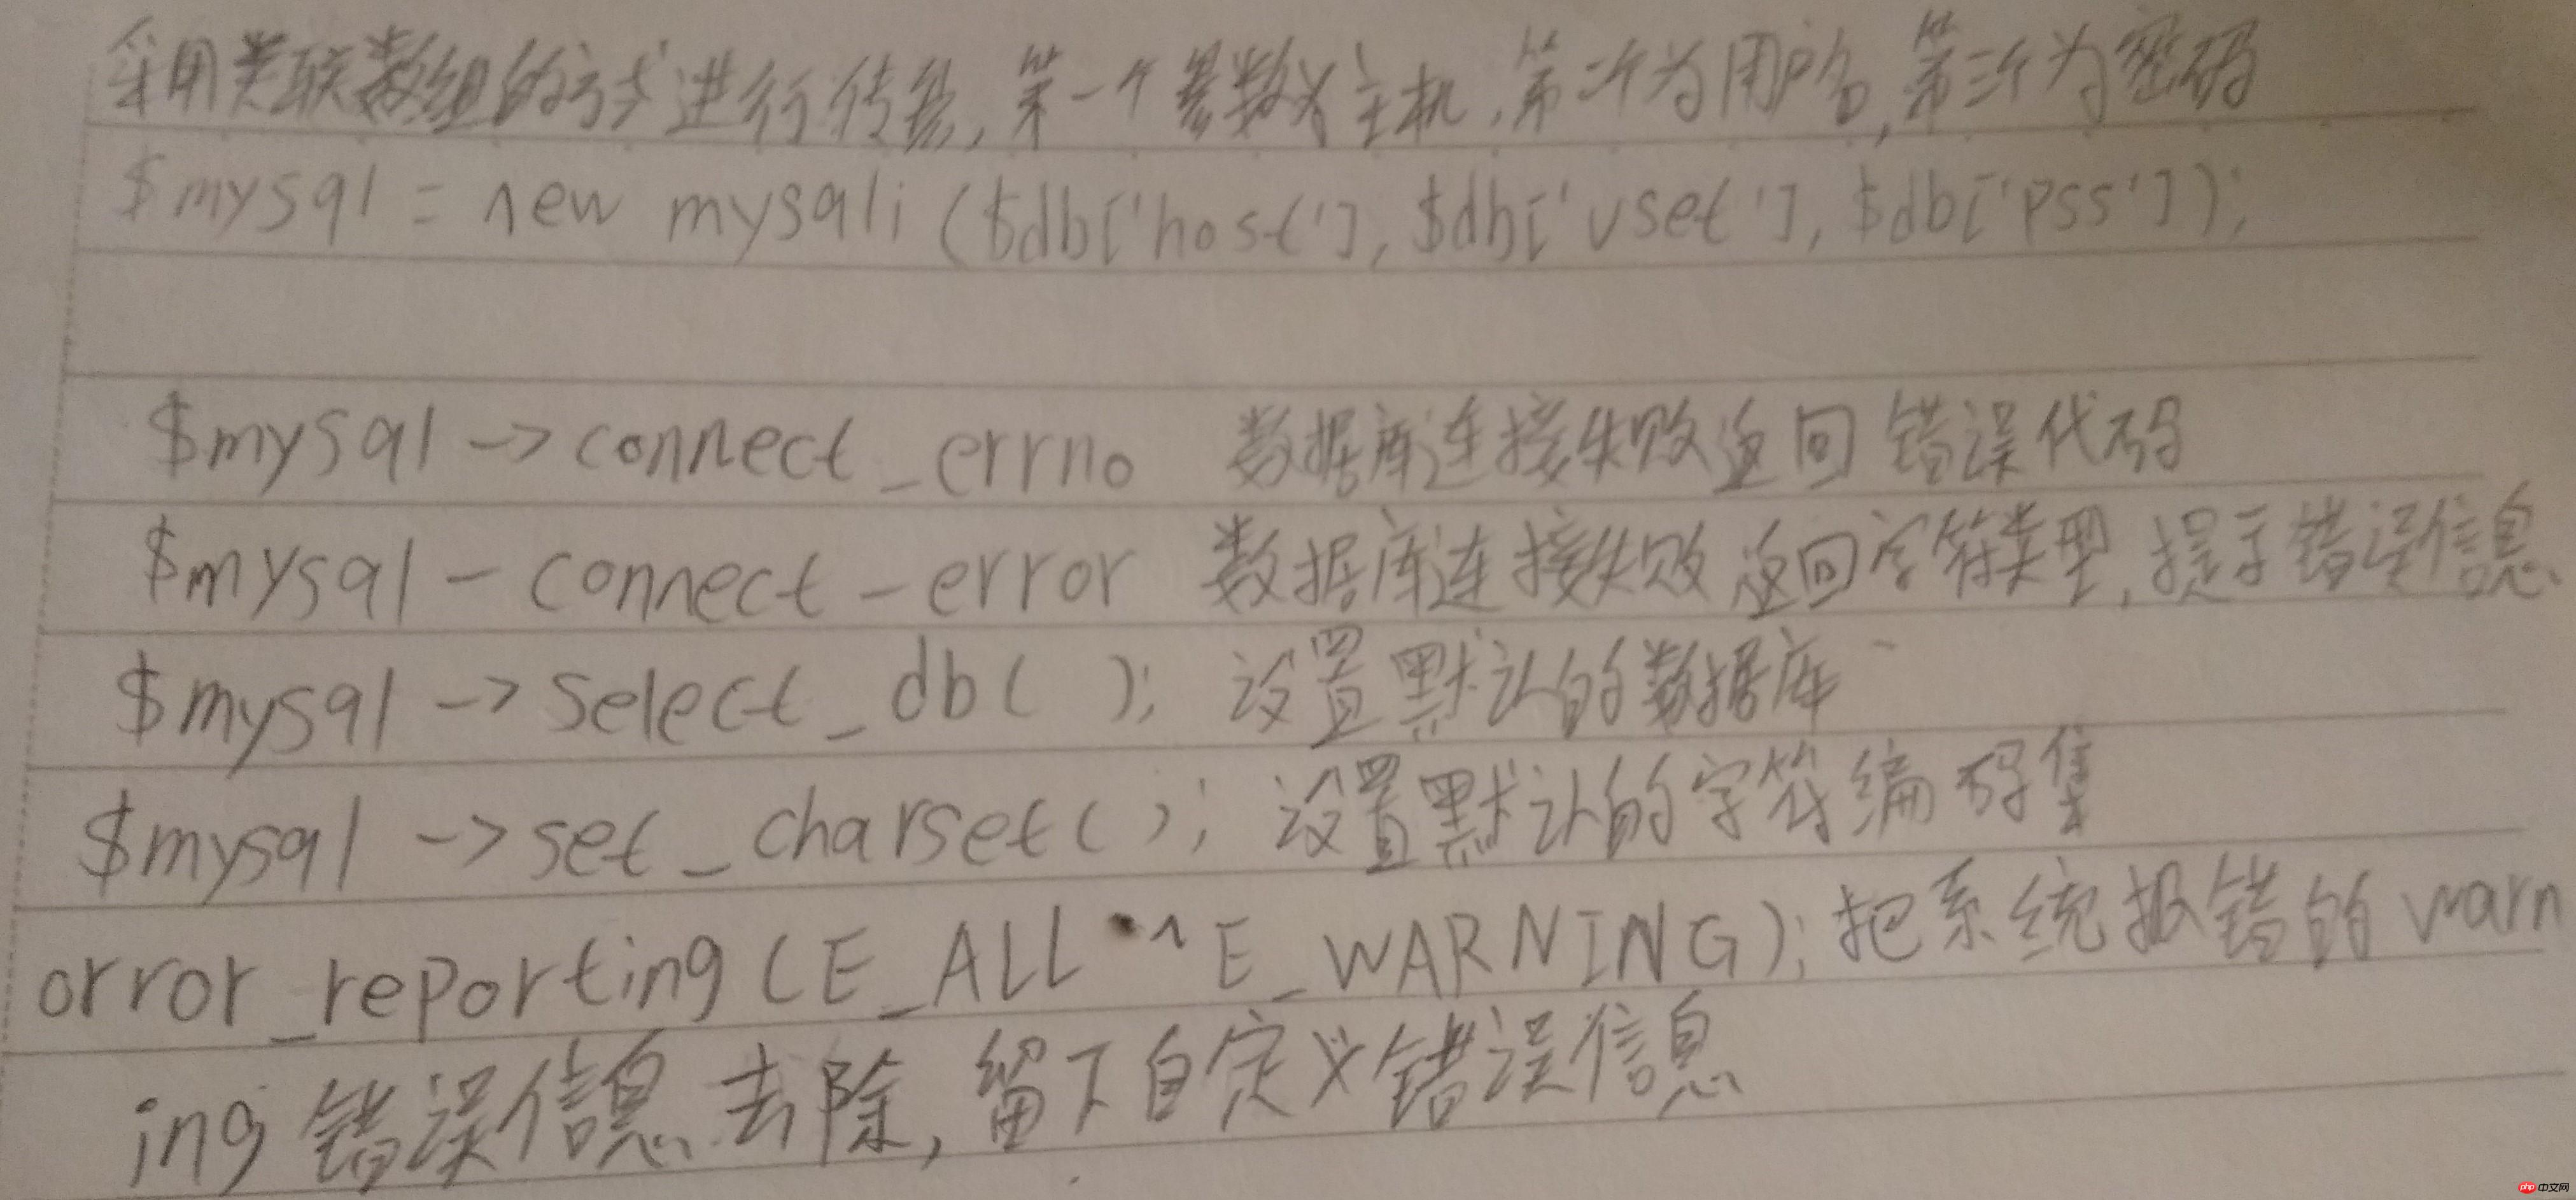 采用关联数组的方式进行传参,第一个参数为主机,第二个为用户名,第三个为密码
$mysql = new mysqli ($db['host'], $db['uset'], $db['pss']);
$mysql -> connect_errno 数据库连接失败返回错误代码
$mysql - connect - error 数据库连接失败返回字符类型,提示错误信息
$mysql -> select_db( ); 设置默认的数据库
$mysql -> set_charset( ); 设置默认的字符编码集
orror_reporting (E_ALL ^ E_WARNING); 把系统报错的warn
ing 错误信息去除,留下自定义错误信息
php 中文网